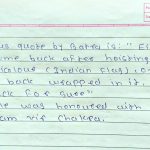 us quote by Batra is: " Ei
ome back after hoisting
icolour (Indian Flag), o
back wrapped in it,
ck for sure"
e was honoured with
am Vir Chakra.